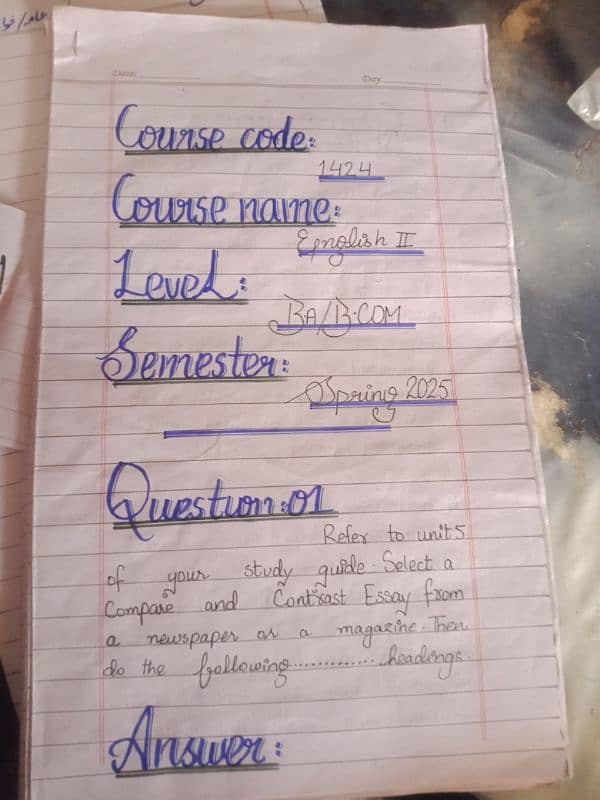 Date:
Day:
Course code:
1424
Course name:
English II
Level:
BA/B.COM
Semester:
Spring 2025
Question:01
Refer to unit 5
of your study guide. Select a
Compare and Contrast Essay from
a newspaper or a magazine. Then
do the following............... headings.
Answer: